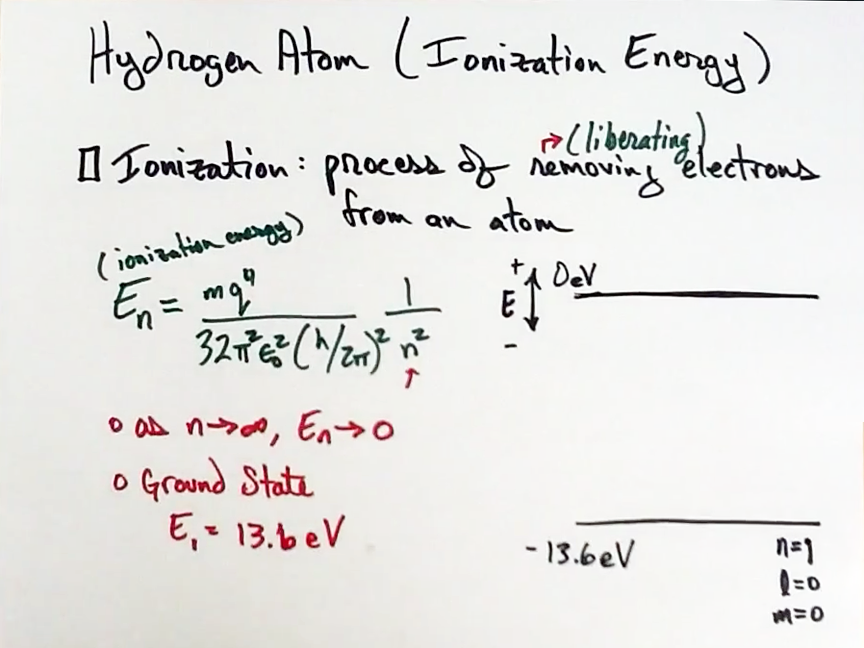 Hydrogen Atom (Ionization Energy)
(liberating)
Ionization: process of removing electrons
from an atom
(ionization energy)
Eₙ = mq⁴ / 32π²ε₀²(h/2π)² 1/n²
+ 0eV
E
-
o as n→∞, Eₙ→0
o Ground State
E₁ = 13.6 eV
-13.6eV
n=1
l=0
m=0